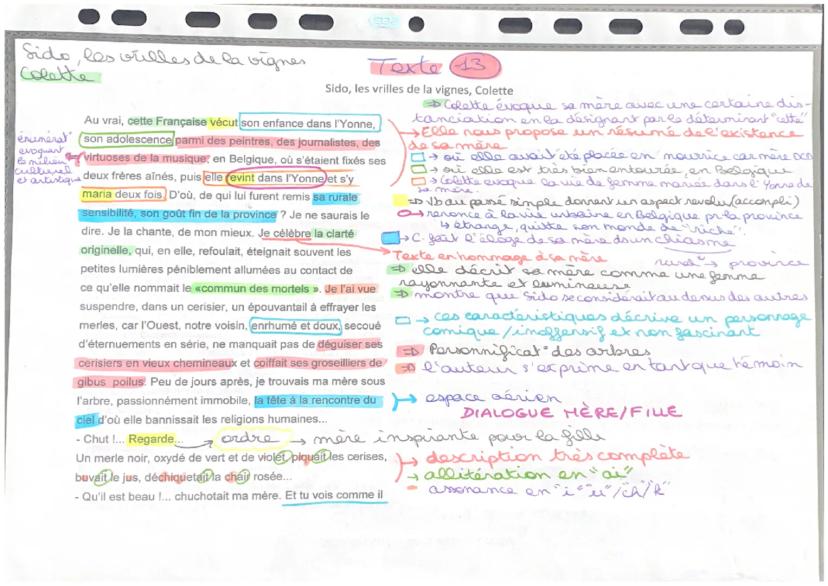 Sido, les vrilles de la vignes
Colette
Texte 13
Sido, les vrilles de la vignes, Colette
Au vrai, cette Française vécut son enfance dans l'Yonne,
son adolescence parmi des peintres, des journalistes, des
virtuoses de la musique, en Belgique, où s'étaient fixés ses
deux frères aînés, puis elle revint dans l'Yonne et s'y
maria deux fois. D'où, de qui lui furent remis sa rurale
sensibilité, son goût fin de la province ? Je ne saurais le
dire. Je la chante, de mon mieux. Je célèbre la clarté
originelle, qui, en elle, refoulait, éteignait souvent les
petites lumières péniblement allumées au contact de
ce qu'elle nommait le «commun des mortels ». Je l'ai vue
suspendre, dans un cerisier, un épouvantail à effrayer les
merles, car l'Ouest, notre voisin, enrhumé et doux, secoué
d'éternuements en série, ne manquait pas de déguiser ses
cerisiers en vieux chemineaux et coiffait ses groseilliers de
gibus poilus. Peu de jours après, je trouvais ma mère sous
l'arbre, passionnément immobile, la tête à la rencontre du
ciel d'où elle bannissait les religions humaines...
- Chut !... Regarde...
Un merle noir, oxydé de vert et de violet, piquait les cerises,
buvait le jus, déchiquetait la chair rosée...
- Qu'il est beau !... chuchotait ma mère. Et tu vois comme il
énumérat°
evoquant
le milieu
culturel
et artistique
⇒ Colette évoque sa mère avec une certaine dis-
tanciation en la désignant par le déterminant "cette"
→ Elle nous propose un résumé de l'existence
de sa mère
→ où elle avait été placée en nourrice car mère
→ où elle est très bien entourée, en Belgique
→ Colette évoque la vie de femme mariée dans l'Yonne de
sa mère.
⇒ Vb au passé simple donnent un aspect révolu (accompli)
→ renonce à la vie urbaine en Belgique pr la province
↳ étrange, quitte son monde de "riche".
→ C. fait l'éloge de sa mère dr un chiasme
rural → province
Texte en hommage à sa mère
⇒ elle décrit sa mère comme une femme
rayonnante et lumineuse
⇒ montre que Sido se considérait au desus des autres
→ ces caractéristiques décrive un personnage
comique / inoffensif et non fascinant
⇒ Personnificat° des arbres
⇒ l'auteur s'exprime en tant que témoin
→ espace aérien
DIALOGUE MÈRE/FILLE
→ ordre → mère inspirante pour la fille
→ description très complète
→ allitération en "ai"
→ assonance en "i" "u"/"ch/k"